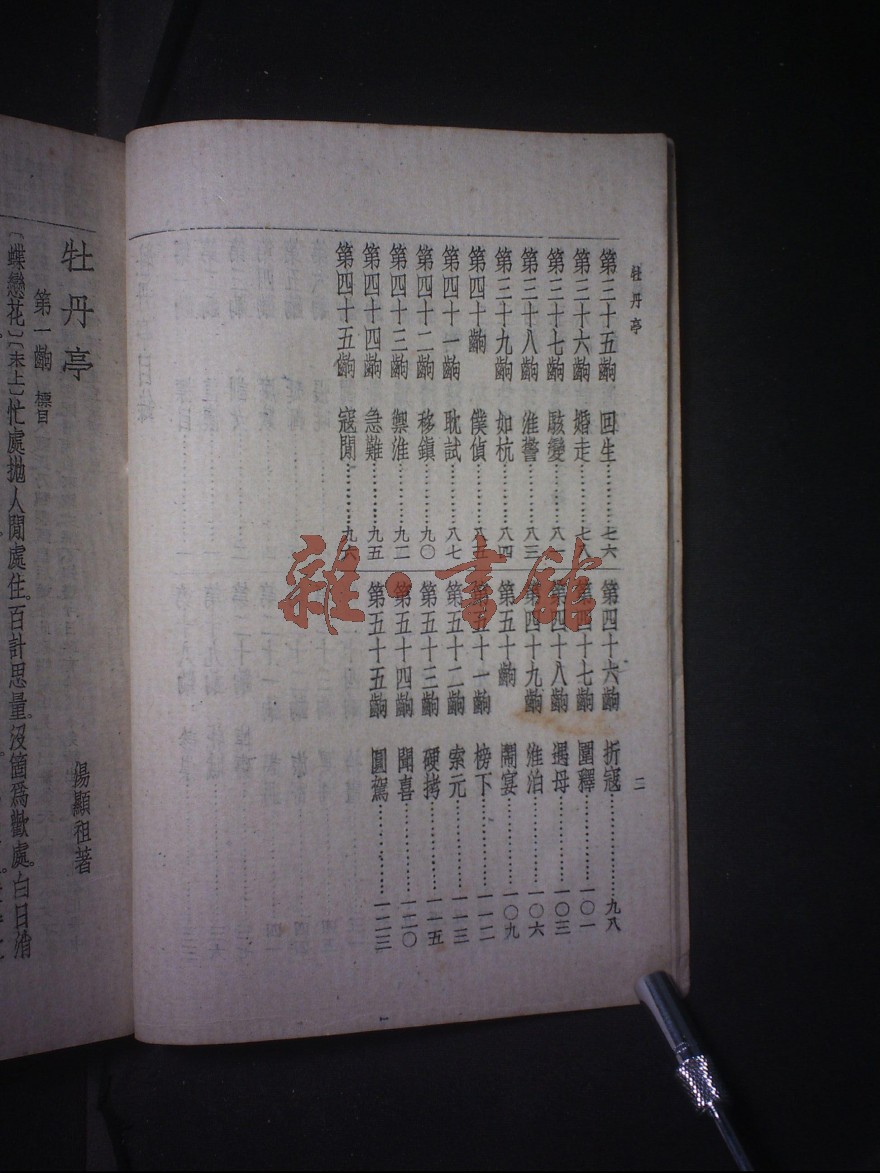 牡丹亭
第三十五齣 回生…………七六
第三十六齣 婚走…………七八
第三十七齣 駭變…………八一
第三十八齣 淮警…………八三
第三十九齣 如杭…………八四
第四十齣 僕偵…………八五
第四十一齣 耽試…………八七
第四十二齣 移鎮…………九〇
第四十三齣 禦淮…………九二
第四十四齣 急難…………九五
第四十五齣 寇閒…………九六
第四十六齣 折寇…………九八
第四十七齣 圍釋…………一〇一
第四十八齣 遇母…………一〇三
第四十九齣 淮泊…………一〇六
第五十齣 鬧宴…………一〇九
第五十一齣 榜下…………一一二
第五十二齣 索元…………一一三
第五十三齣 硬拷…………一一五
第五十四齣 聞喜…………一二〇
第五十五齣 圓駕…………一二三
二
雜·書館
牡丹亭
湯顯祖著
第一齣 標目
〔蝶戀花〕〔末上〕忙處拋人閒處住。百計思量。沒箇爲歡處。白日消